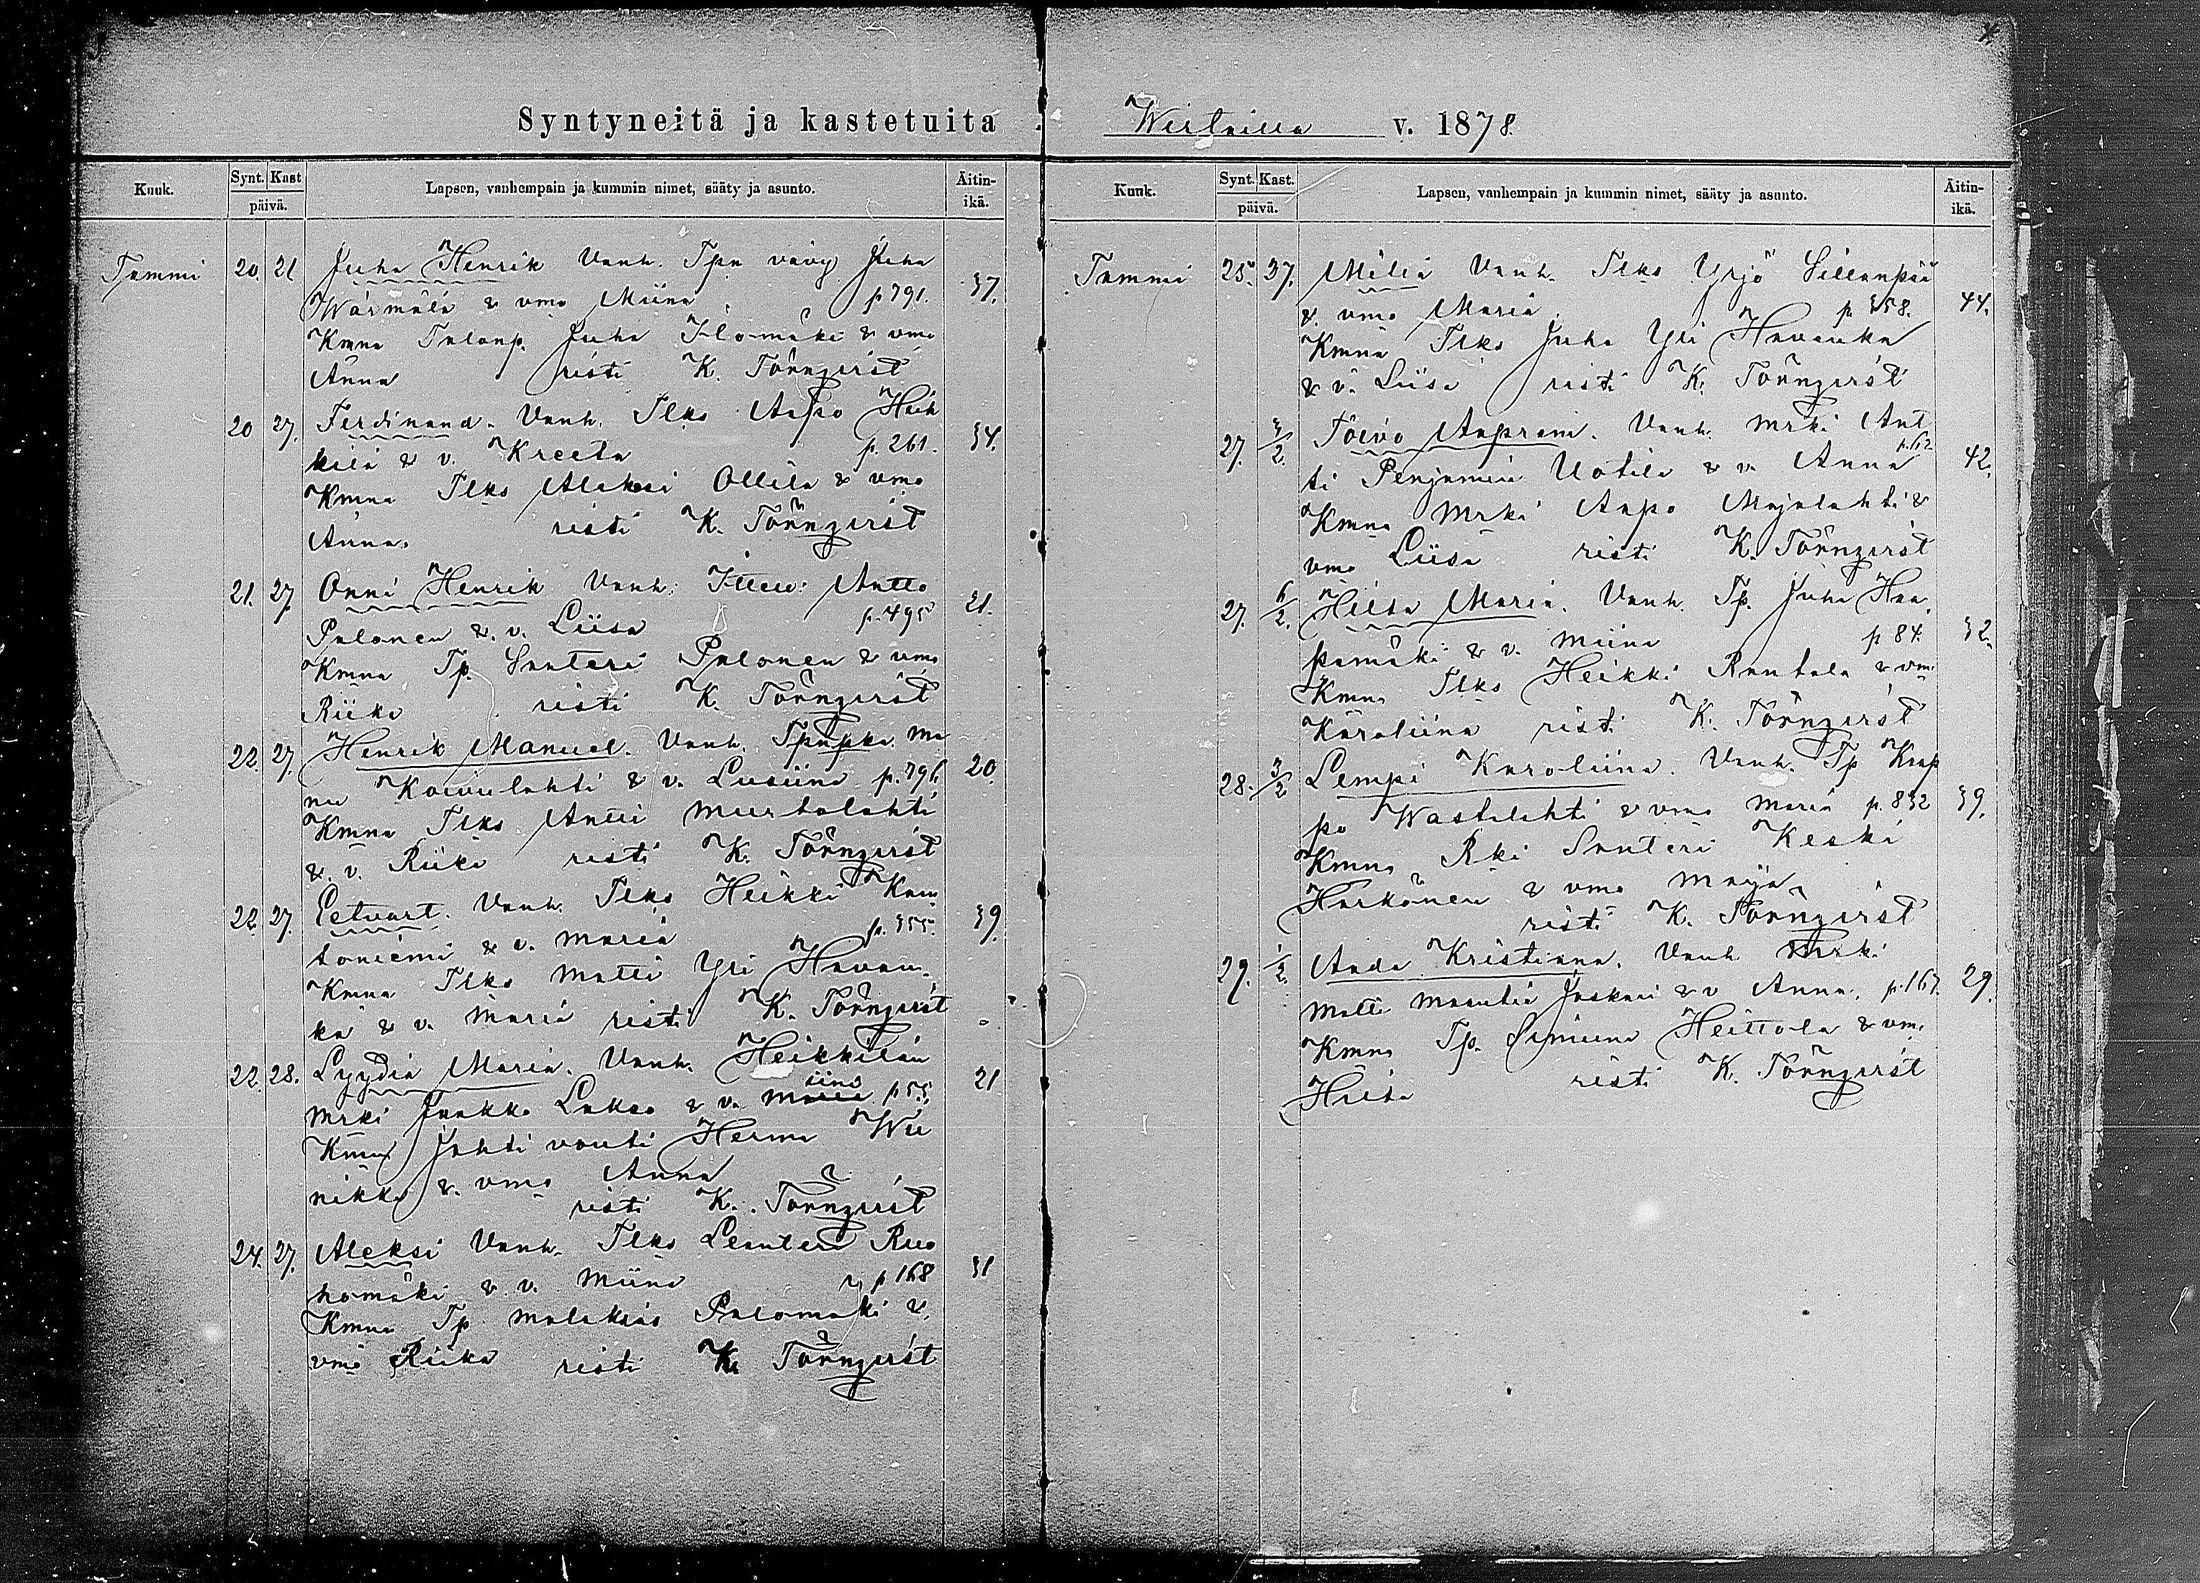 4
Syntyneitä ja kastetuita
Kuuk. Synt. Kast päivä. Lapsen, vanhempain ja kummin nimet, sääty ja asunto. Äitin-ikä.
Tammi 20 21 Juha Henrik Vanh. Tpn vävy Juha
Wärmälä & vmo Miina p 791. 37.
Kmna Talonp. Juha Ilomäki & vmo
Anna risti K. Törnqvist
20 27. Ferdinand. Vanh. Tlks Aapo Heik
kilä & v. Kreeta p. 261. 34.
Kmna Tlks Aleksi Ollila & vmo
Anna. risti K. Törnqvist
21. 27. Onni Henrik Vanh: Antto
Palonen & v. Liisa p. 495 21.
Kmna Tp. Santeri Palonen & vmo
Riika risti K. Törnqvist
22. 27. Henrik Manuel. Vanh. Ma
nu Koivulahti & v. Lusiina p. 796. 20.
Kmna Tlks Antti Murtolahti
& v. Riika risti K. Törnqvist
22. 27. Eetvart. Vanh. Tlks Heikki Kan
toniemi & v. Maria p. 355. 39.
Kmna Tlks Matti Yli Havan
ka & v. Maria risti K. Törnqvist
22. 28. Lyydia Maria. Vanh. Heikkilän
iina
Mrki Jaakko Lukas & v. Maria p. 55 21
Kmna Jahti vouti Herma Wii
nikka & vmo Anna
risti K. Törnqvist
24. 27. Aleksi Vanh. Tlks Leanteri Ruo
homäki & v. Miina p 168 31
Kmna Tp Malakias Palomäki &
vmo Riika risti K. Törnqvist
Wirtailla v. 1878
Kuuk. Synt. Kast. päivä. Lapsen, vanhempain ja kummin nimet, sääty ja asunto. Äitin-ikä.
Tammi 25. 27. Milia Vanh. Tlks Yrjö Sillanpää
& vmo Maria. p. 358. 44.
Kmna Tlks Juha Yli Havanka
& v. Liisa risti K. Törnqvist
27. 3/2. Toivo Aapram. Vanh. Mrki Ant
ti Penjamin Uotila & v. Anna p. 62 42.
Kmna Mrki Aapo Majalahti &
vmo Liisa risti K. Törnqvist
27. 6/2. Hilta Maria. Vanh. Tp. Juha Haa
pamäki & v. Miina p 84. 32.
Kmna Tlks Heikki Rantala & vmo
Karoliina risti K. Törnqvist
28. 3/2 Lempi Karoliina. Vanh. Tp Kaap
po Wastilahti & vmo Maria p. 832 39.
Kmna Rki Santeri Keski
Harkönen & vmo Maija
risti K. Törnqvist
29. 1/2 Aada Kristiina. Vanh Mrki
Matti Jaskari & v Anna. p. 167. 29.
Kmna Tp. Simuna Heittola & vmo
Heeta risti K. Törnqvist